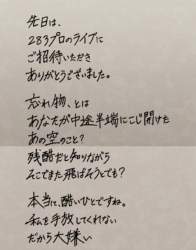 先日は、
283プロのライブに
ご招待いただき
ありがとうございました。
忘れ物、とは
あなたが中途半端にこじ開けた
あの空のこと?
残酷だと知りながら
そこでまた飛ばそうしても?
本当に、酷いひとですね。
私を手放してくれない
だから大嫌い